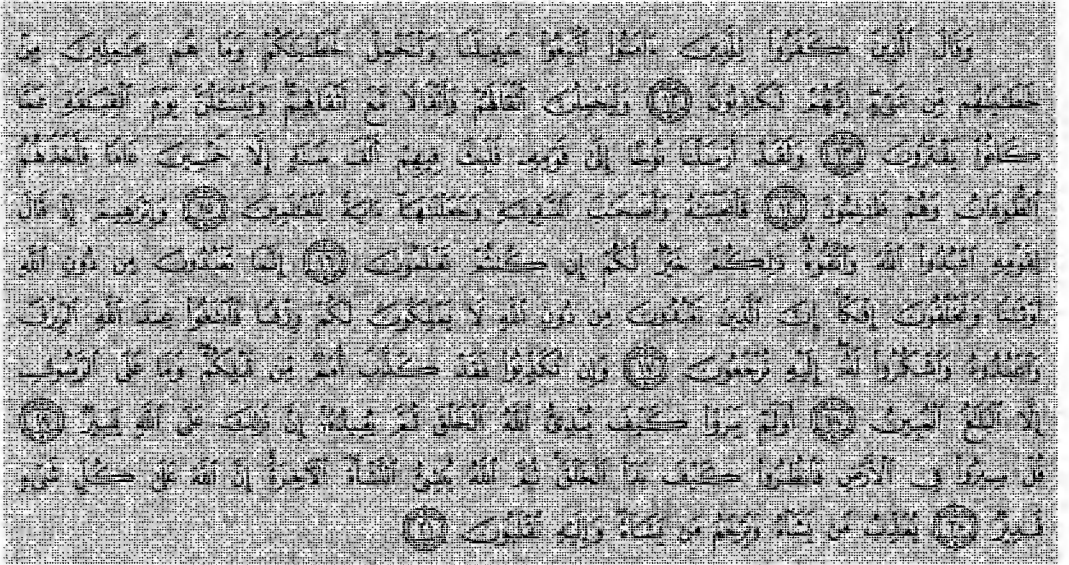 وَقَالَ ٱلَّذِينَ كَفَرُوا۟ لِلَّذِينَ ءَامَنُوا۟ ٱتَّبِعُوا۟ سَبِيلَنَا وَلْنَحْمِلْ خَطَـٰيَـٰكُمْ وَمَا هُم بِحَـٰمِلِينَ مِنْ
خَطَـٰيَـٰهُم مِّن شَىْءٍ إِنَّهُمْ لَكَـٰذِبُونَ ١٢ وَلَيَحْمِلُنَّ أَثْقَالَهُمْ وَأَثْقَالًا مَّعَ أَثْقَالِهِمْ وَلَيُسْـَٔلُنَّ يَوْمَ ٱلْقِيَـٰمَةِ عَمَّا
كَانُوا۟ يَفْتَرُونَ ١٣ وَلَقَدْ أَرْسَلْنَا نُوحًا إِلَىٰ قَوْمِهِۦ فَلَبِثَ فِيهِمْ أَلْفَ سَنَةٍ إِلَّا خَمْسِينَ عَامًا فَأَخَذَهُمُ
ٱلطُّوفَانُ وَهُمْ ظَـٰلِمُونَ ١٤ فَأَنجَيْنَـٰهُ وَأَصْحَـٰبَ ٱلسَّفِينَةِ وَجَعَلْنَـٰهَآ ءَايَةً لِّلْعَـٰلَمِينَ ١٥ وَإِبْرَٰهِيمَ إِذْ قَالَ
لِقَوْمِهِ ٱعْبُدُوا۟ ٱللَّهَ وَٱتَّقُوهُ ذَٰلِكُمْ خَيْرٌ لَّكُمْ إِن كُنتُمْ تَعْلَمُونَ ١٦ إِنَّمَا تَعْبُدُونَ مِن دُونِ ٱللَّهِ
أَوْثَـٰنًا وَتَخْلُقُونَ إِفْكًا إِنَّ ٱلَّذِينَ تَعْبُدُونَ مِن دُونِ ٱللَّهِ لَا يَمْلِكُونَ لَكُمْ رِزْقًا فَٱبْتَغُوا۟ عِندَ ٱللَّهِ ٱلرِّزْقَ
وَٱعْبُدُوهُ وَٱشْكُرُوا۟ لَهُۥٓ إِلَيْهِ تُرْجَعُونَ ١٧ وَإِن تُكَذِّبُوا۟ فَقَدْ كَذَّبَ أُمَمٌ مِّن قَبْلِكُمْ وَمَا عَلَى ٱلرَّسُولِ
إِلَّا ٱلْبَلَـٰغُ ٱلْمُبِينُ ١٨ أَوَلَمْ يَرَوْا۟ كَيْفَ يُبْدِئُ ٱللَّهُ ٱلْخَلْقَ ثُمَّ يُعِيدُهُۥٓ إِنَّ ذَٰلِكَ عَلَى ٱللَّهِ يَسِيرٌ ١٩
قُلْ سِيرُوا۟ فِى ٱلْأَرْضِ فَٱنظُرُوا۟ كَيْفَ بَدَأَ ٱلْخَلْقَ ثُمَّ ٱللَّهُ يُنشِئُ ٱلنَّشْأَةَ ٱلْـَٔاخِرَةَ إِنَّ ٱللَّهَ عَلَىٰ كُلِّ شَىْءٍ
قَدِيرٌ ٢٠ يُعَذِّبُ مَن يَشَآءُ وَيَرْحَمُ مَن يَشَآءُ وَإِلَيْهِ تُقْلَبُونَ ٢١